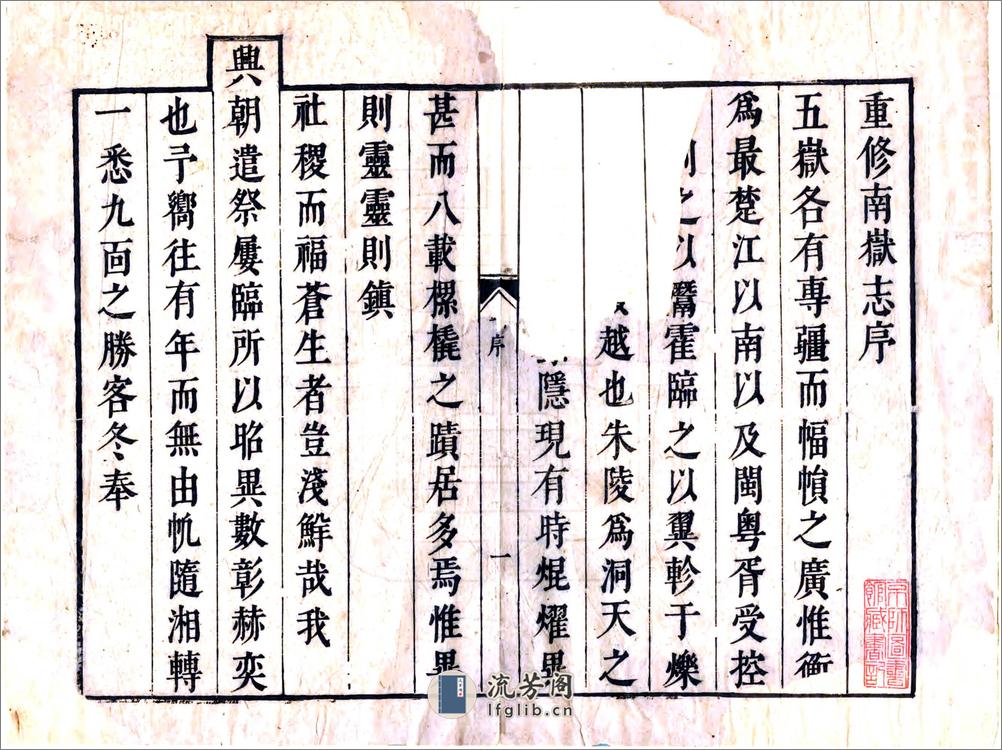 重修南嶽志序
五嶽各有專疆而幅幀之廣惟衡
爲最楚江以南以及閩粵胥受控
之以霍臨之以翼軫于爍
越也朱陵爲洞天之
隱現有時焜燿異
甚而八載樏橇之蹟居多焉惟異
則靈靈則鎮
社稷而福蒼生者豈淺鮮哉我
興朝遣祭屢臨所以昭異數彰赫奕
也予嚮往有年而無由㠶隨湘轉
一悉九面之勝客冬奉
序
一
流芳阁
lfglib.cn